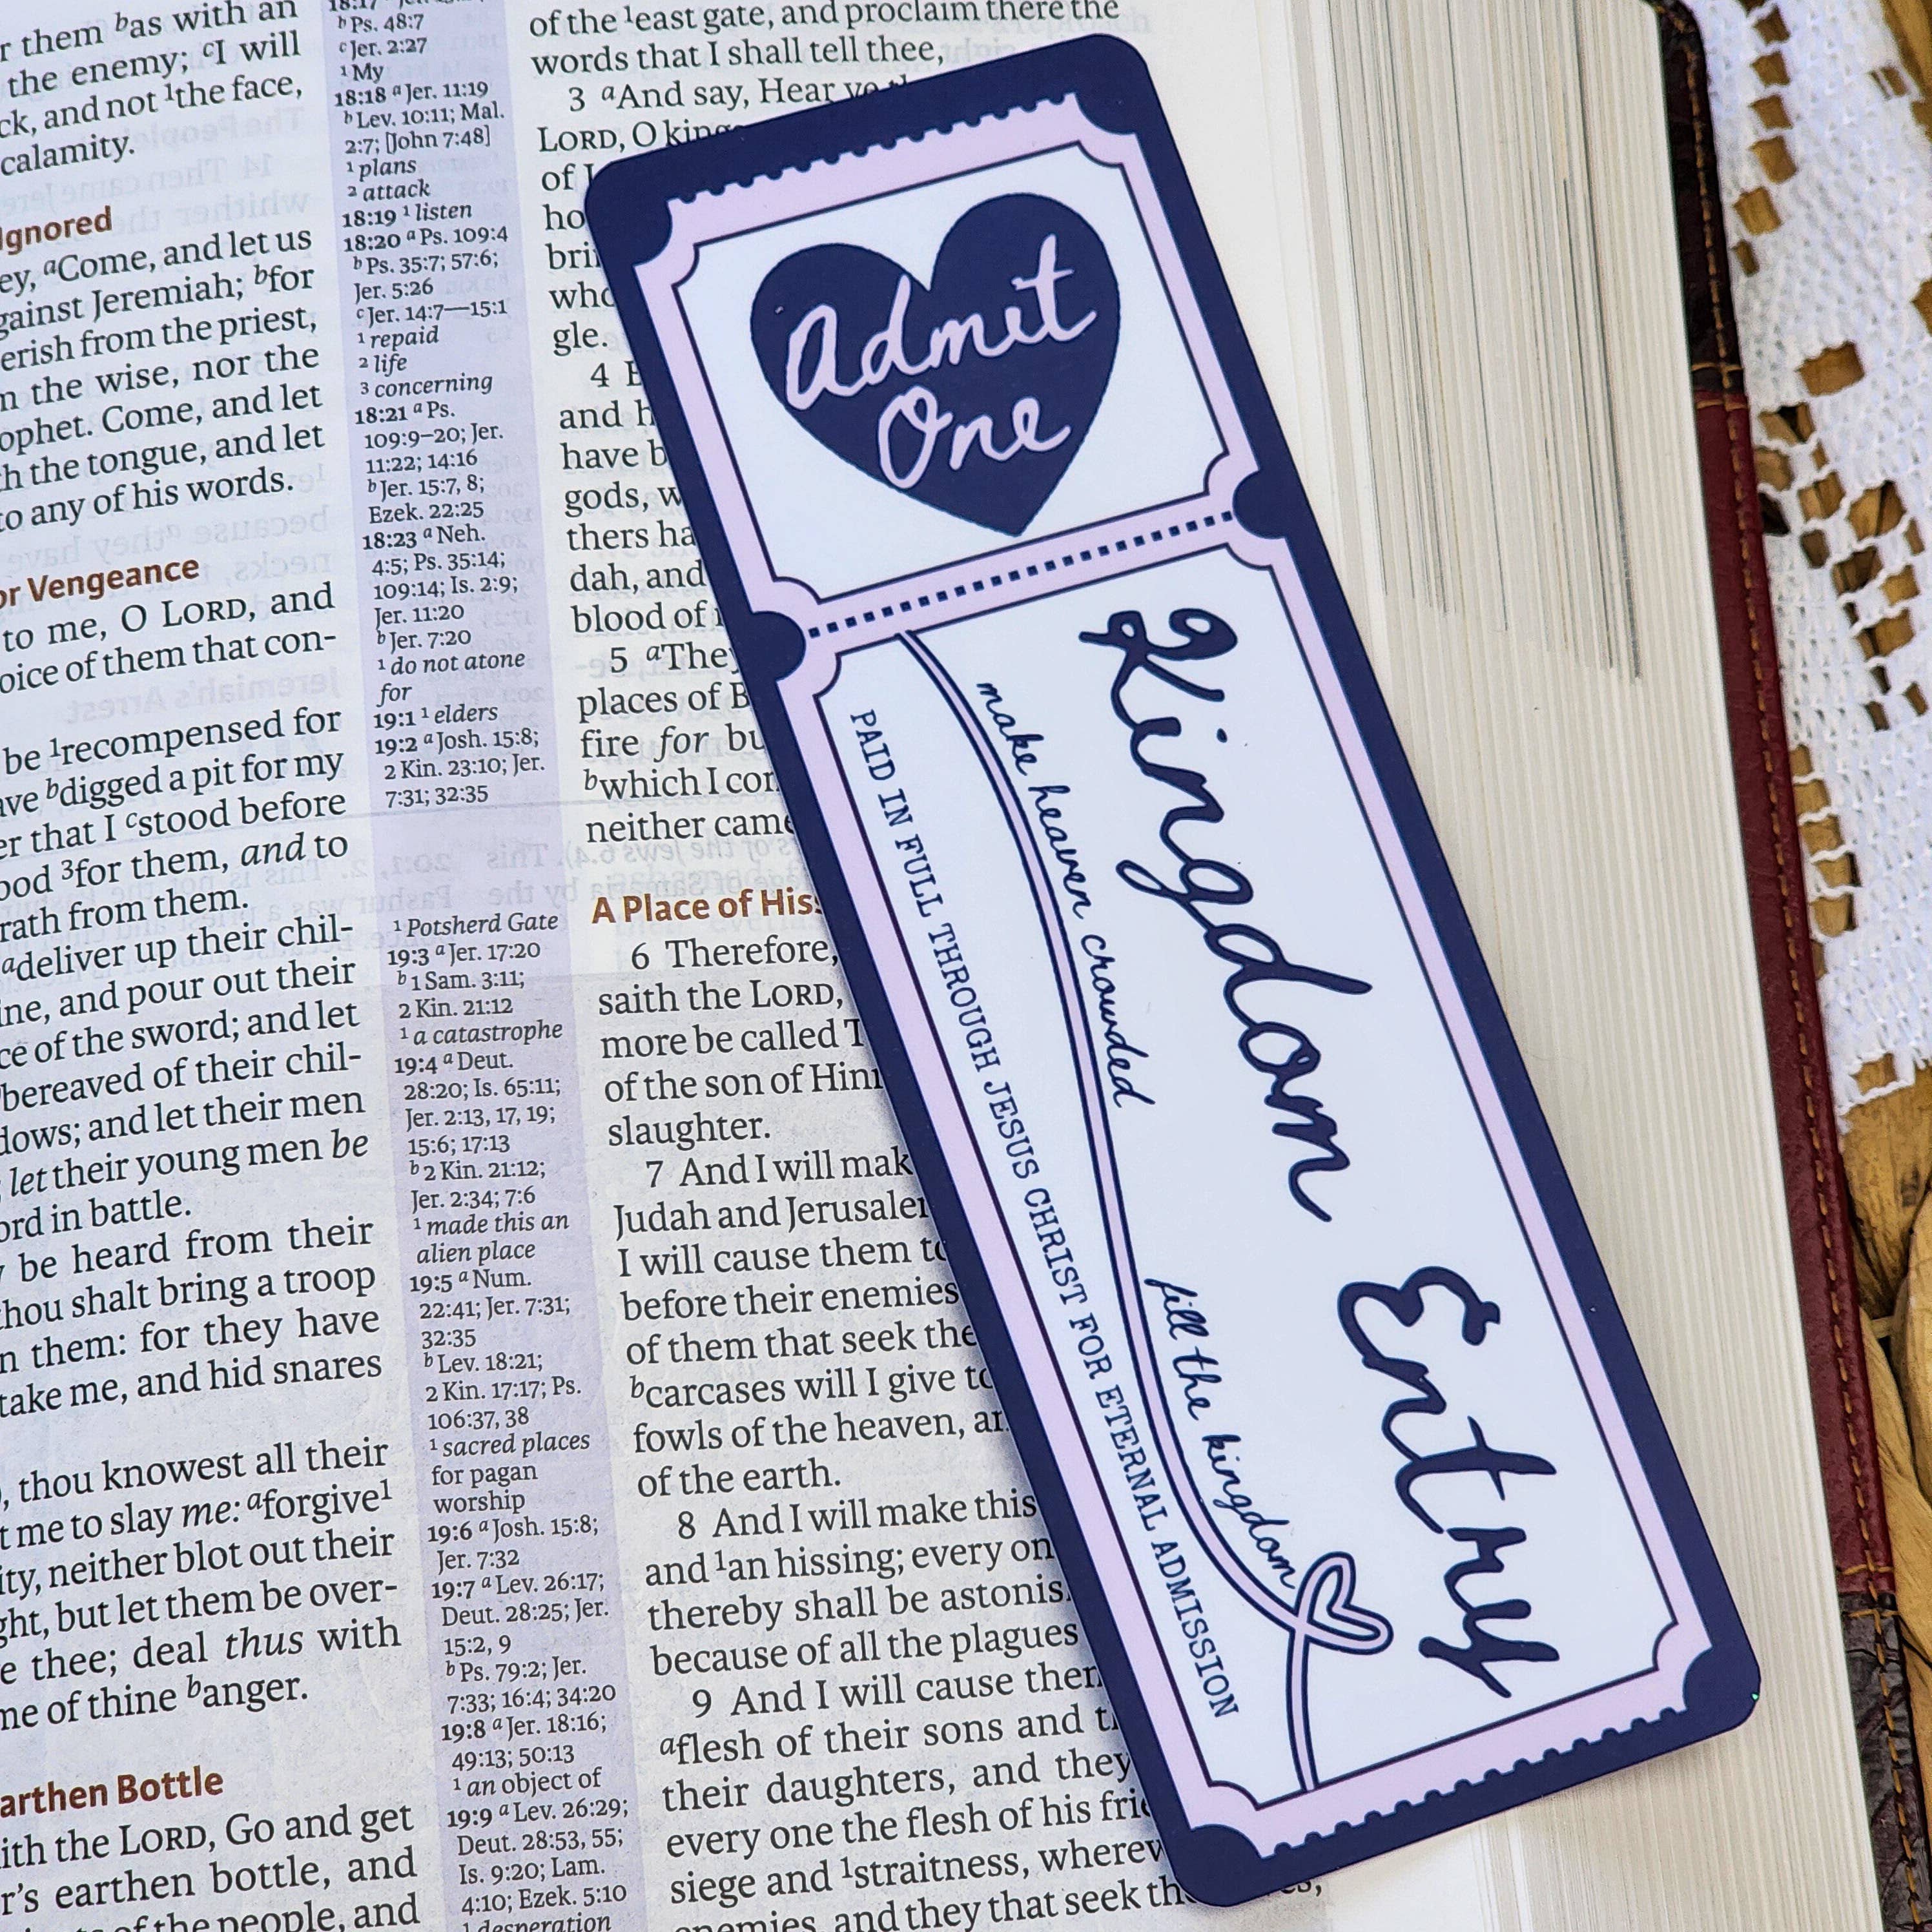 r them bas with an
the enemy; cI will
ck, and not 1the face,
calamity.
Ignored
ey, aCome, and let us
gainst Jeremiah; bfor
erish from the priest,
m the wise, nor the
ophet. Come, and let
h the tongue, and let
to any of his words.
or Vengeance
to me, O LORD, and
oice of them that con-
be 1recompensed for
ave bdigged a pit for my
er that I cstood before
ood 3for them, and to
rath from them.
adeliver up their chil-
ine, and pour out their
ce of the sword; and let
bereaved of their chil-
dows; and let their men
let their young men be
ord in battle.
be heard from their
thou shalt bring a troop
n them: for they have
take me, and hid snares
, thou knowest all their
t me to slay me: aforgive1
ity, neither blot out their
ght, but let them be over-
e thee; deal thus with
me of thine banger.
arthen Bottle
ith the LORD, Go and get
r's earthen bottle, and
of the people, and
b Ps. 48:7
c Jer. 2:27
1 My
18:18 a Jer. 11:19
b Lev. 10:11; Mal.
2:7; [John 7:48]
1 plans
2 attack
18:19 1 listen
18:20 a Ps. 109:4
b Ps. 35:7; 57:6;
Jer. 5:26
c Jer. 14:7—15:1
1 repaid
2 life
3 concerning
18:21 a Ps.
109:9–20; Jer.
11:22; 14:16
b Jer. 15:7, 8;
Ezek. 22:25
18:23 a Neh.
4:5; Ps. 35:14;
109:14; Is. 2:9;
Jer. 11:20
b Jer. 7:20
1 do not atone
for
19:1 1 elders
19:2 a Josh. 15:8;
2 Kin. 23:10; Jer.
7:31; 32:35
1 Potsherd Gate
19:3 a Jer. 17:20
b 1 Sam. 3:11;
2 Kin. 21:12
1 a catastrophe
19:4 a Deut.
28:20; Is. 65:11;
Jer. 2:13, 17, 19;
15:6; 17:13
b 2 Kin. 21:12;
Jer. 2:34; 7:6
1 made this an
alien place
19:5 a Num.
22:41; Jer. 7:31;
32:35
b Lev. 18:21;
2 Kin. 17:17; Ps.
106:37, 38
1 sacred places
for pagan
worship
19:6 a Josh. 15:8;
Jer. 7:32
19:7 a Lev. 26:17;
Deut. 28:25; Jer.
15:2, 9
b Ps. 79:2; Jer.
7:33; 16:4; 34:20
19:8 a Jer. 18:16;
49:13; 50:13
1 an object of
19:9 a Lev. 26:29;
Deut. 28:53, 55;
Is. 9:20; Lam.
4:10; Ezek. 5:10
1 desperation
of the 1east gate, and proclaim there the
words that I shall tell thee,
3 aAnd say, Hear ye
LORD, O kings
of J
ho
bri
who
gle.
4
and h
have b
gods, w
thers ha
dah, and
blood of
5 aThey
places of B
fire for bu
bwhich I com
neither came
A Place of His
6 Therefore,
saith the LORD,
more be called T
of the son of Hinn
slaughter.
7 And I will mak
Judah and Jerusalem
I will cause them to
before their enemies
of them that seek the
bcarcases will I give to
fowls of the heaven, an
of the earth.
8 And I will make this
and 1an hissing; every on
thereby shall be astonis
because of all the plagues
9 And I will cause them
aflesh of their sons and t
their daughters, and they
every one the flesh of his frie
siege and 1straitness, wherew
enemies, and they that seek th
Admit
One
Kingdom Entry
make heaven crowded
fill the kingdom
PAID IN FULL THROUGH JESUS CHRIST FOR ETERNAL ADMISSION